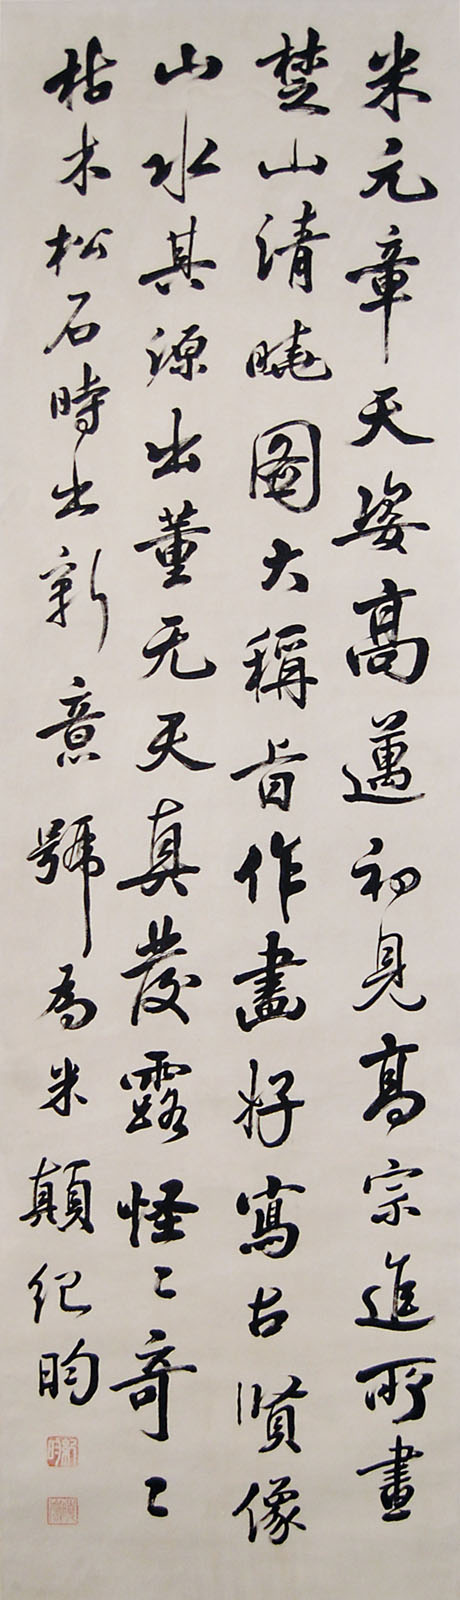 米元章天姿高邁初見高宗進所畫
楚山清曉图大稱旨作畫好寫古賢像
山水其源出董元天真發露怪〻奇〻
枯木松石時出新意號為米顛紀昀